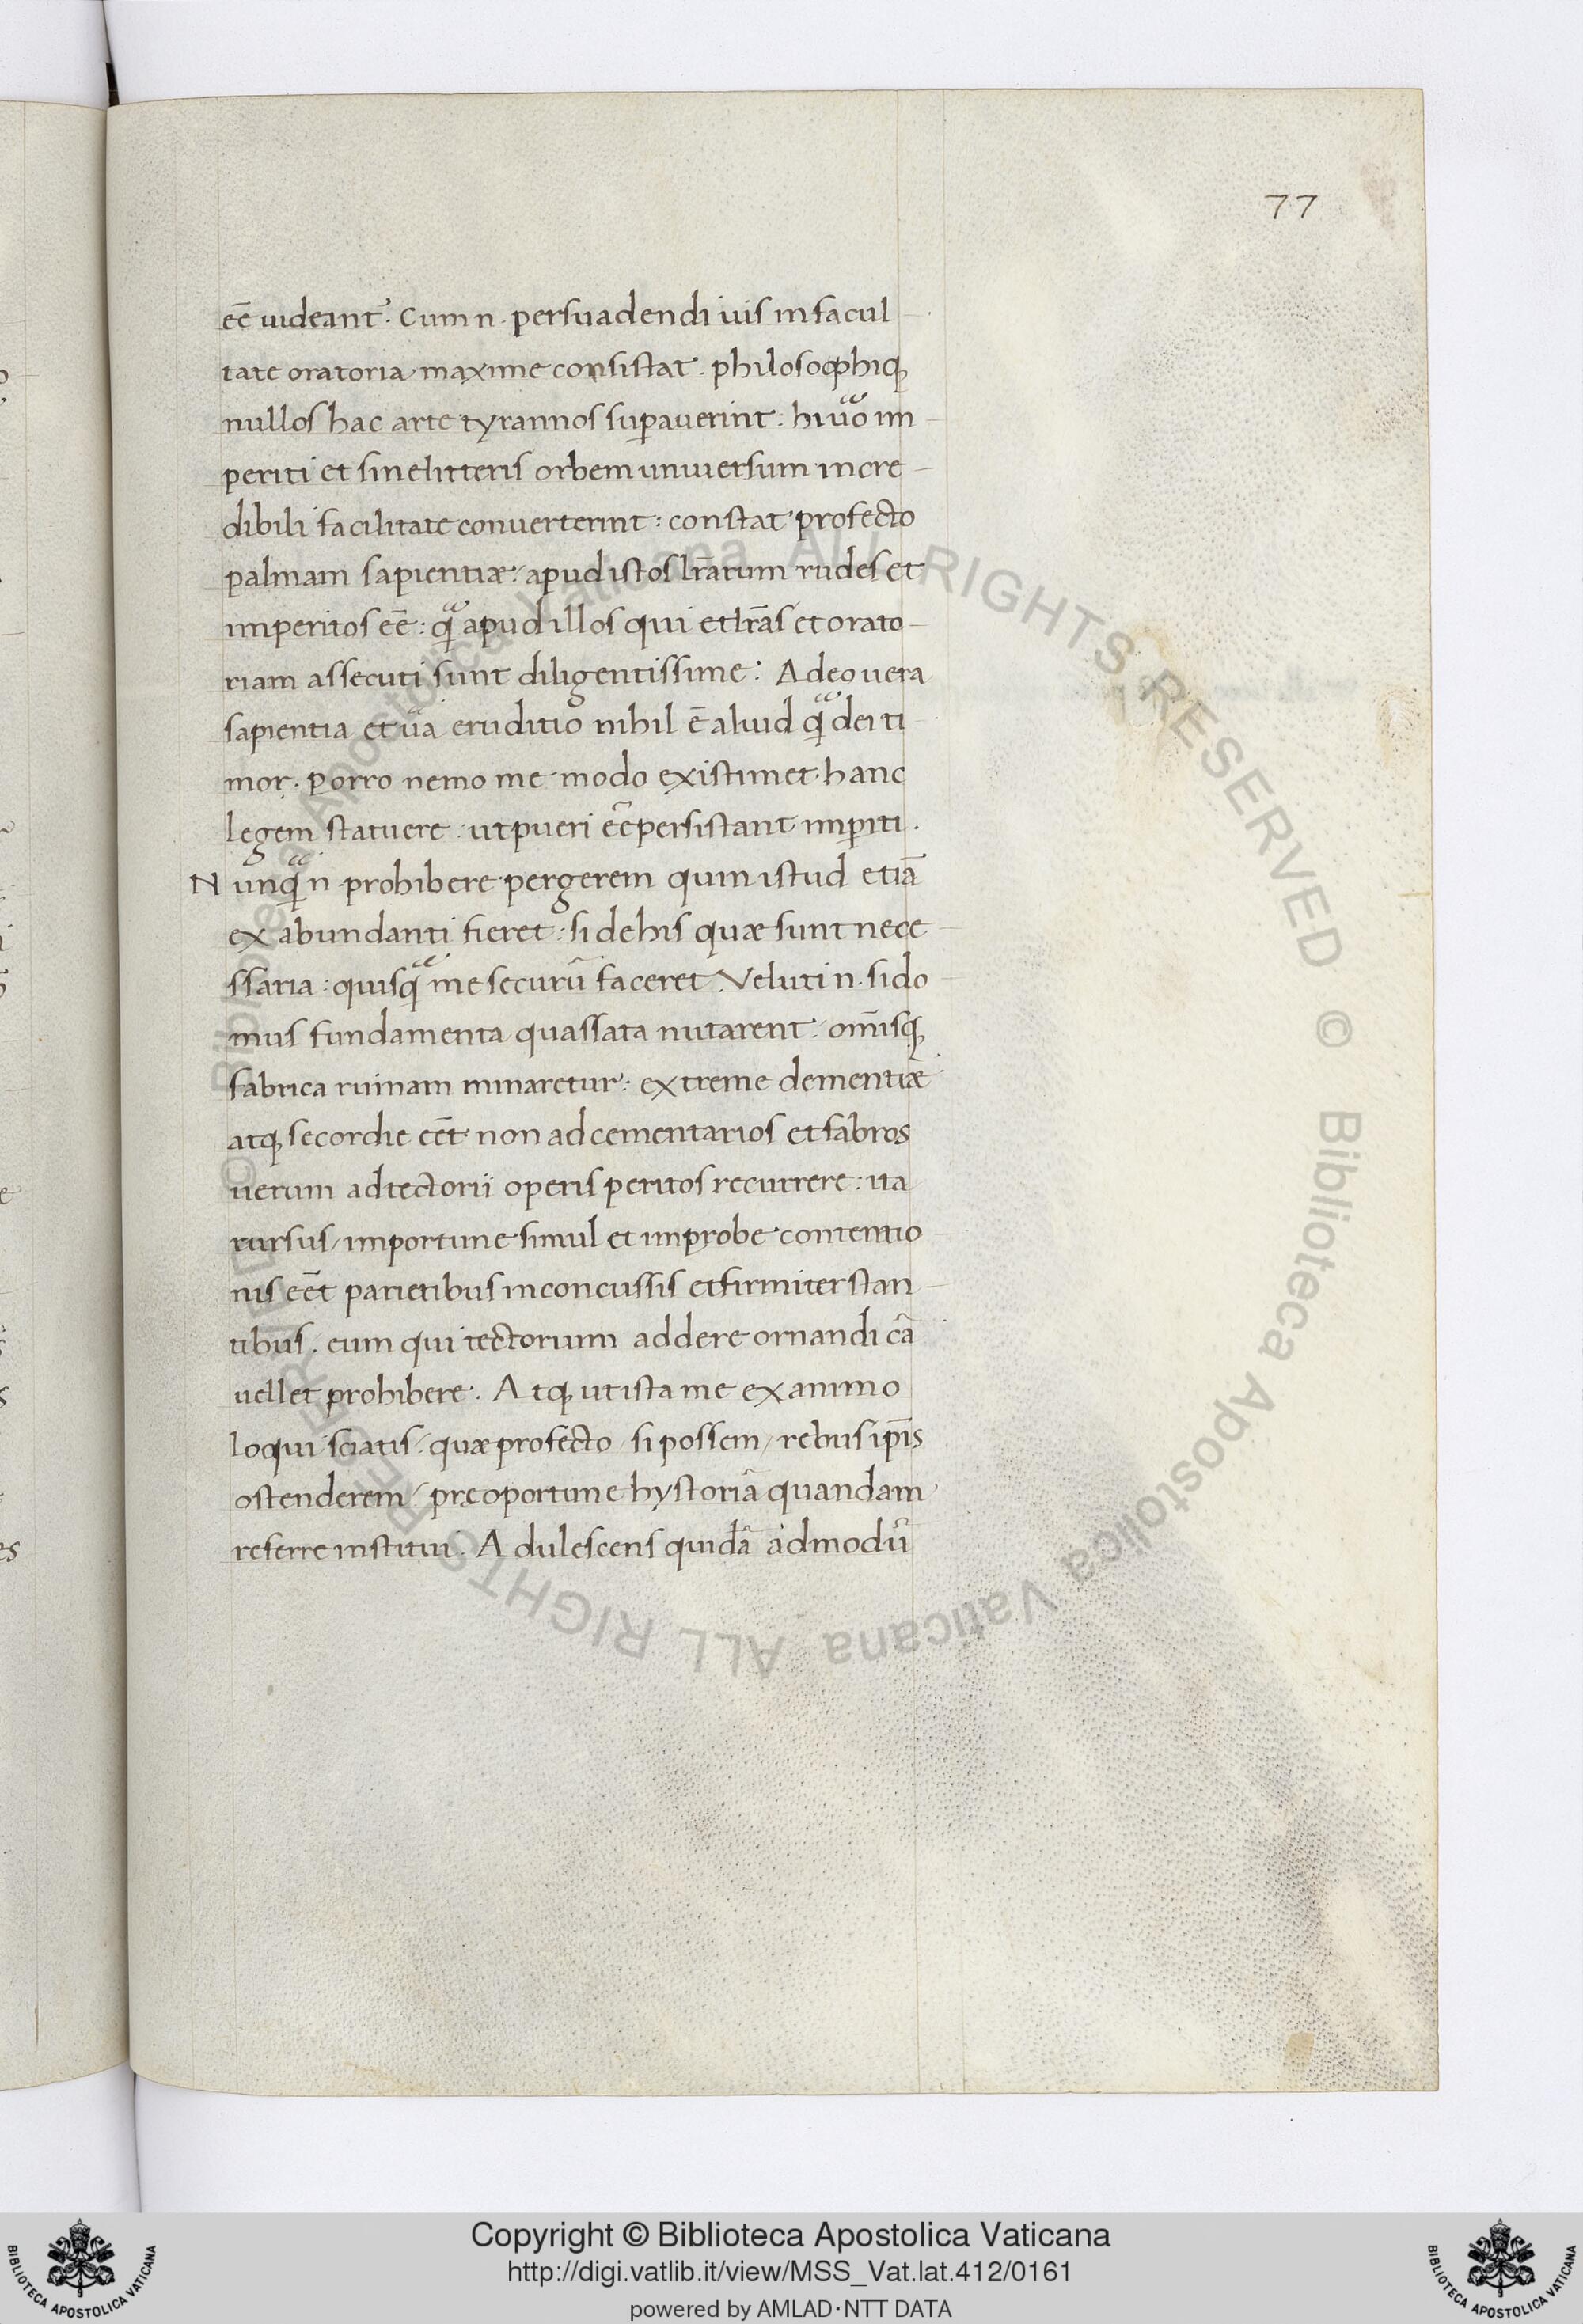 77
eē uideant᷑. Cum n. persuadendi uis in facul
tate oratoria maxime consistat. philosophiq;
nullos hac arte tyrannos sup̲auerint: hi uͣo im
periti et sine litteris orbem uniuersum incre
dibili facilitate conuerterint: constat profecto
palmam sapientiæ: apud istos lr̄arum rudes et
imperitos eē: qͣ apud illos qui et lr̄as et orato
riam assecuti sunt diligentissime: Adeo uera
sapientia et uͣa eruditio nihil ē aliud qͣ dei ti
mor. Porro nemo me modo existimet hanc
legem statuere: ut pueri eē persistant imp̲iti.
Nunqͣ n. prohibere pergerem qum istud etiā
ex abundanti fieret: si de his quæ sunt nece
ssaria: quisqͣ me securū faceret. Veluti n. si do
mus fundamenta quassata nutarent: om̄isq;
fabrica ruinam minaretur: extreme dementiæ
atq; secordie eēt non ad cementarios et fabros
uerum ad tectorii operis peritos recurrere: ita
rursus/ importune simul et improbe contentio
nis eēt parietibus inconcussis et firmiter stan
tibus. eum qui tectorium addere ornandi cā
uellet prohibere. Atq; ut ista me ex animo
loqui sciatis: quæ profecto/ si possem/ rebus ip̄is
ostenderem/ præoportune hystoriā quandam
referre institui. Adulescens quidā admodū
© Biblioteca Apostolica Vaticana ALL RIGHTS RESERVED
© Biblioteca Apostolica Vaticana ALL RIGHTS RESERVED
Copyright © Biblioteca Apostolica Vaticana
http://digi.vatlib.it/view/MSS_Vat.lat.412/0161
powered by AMLAD·NTT DATA
BIBLIOTECA APOSTOLICA VATICANA
BIBLIOTECA APOSTOLICA VATICANA